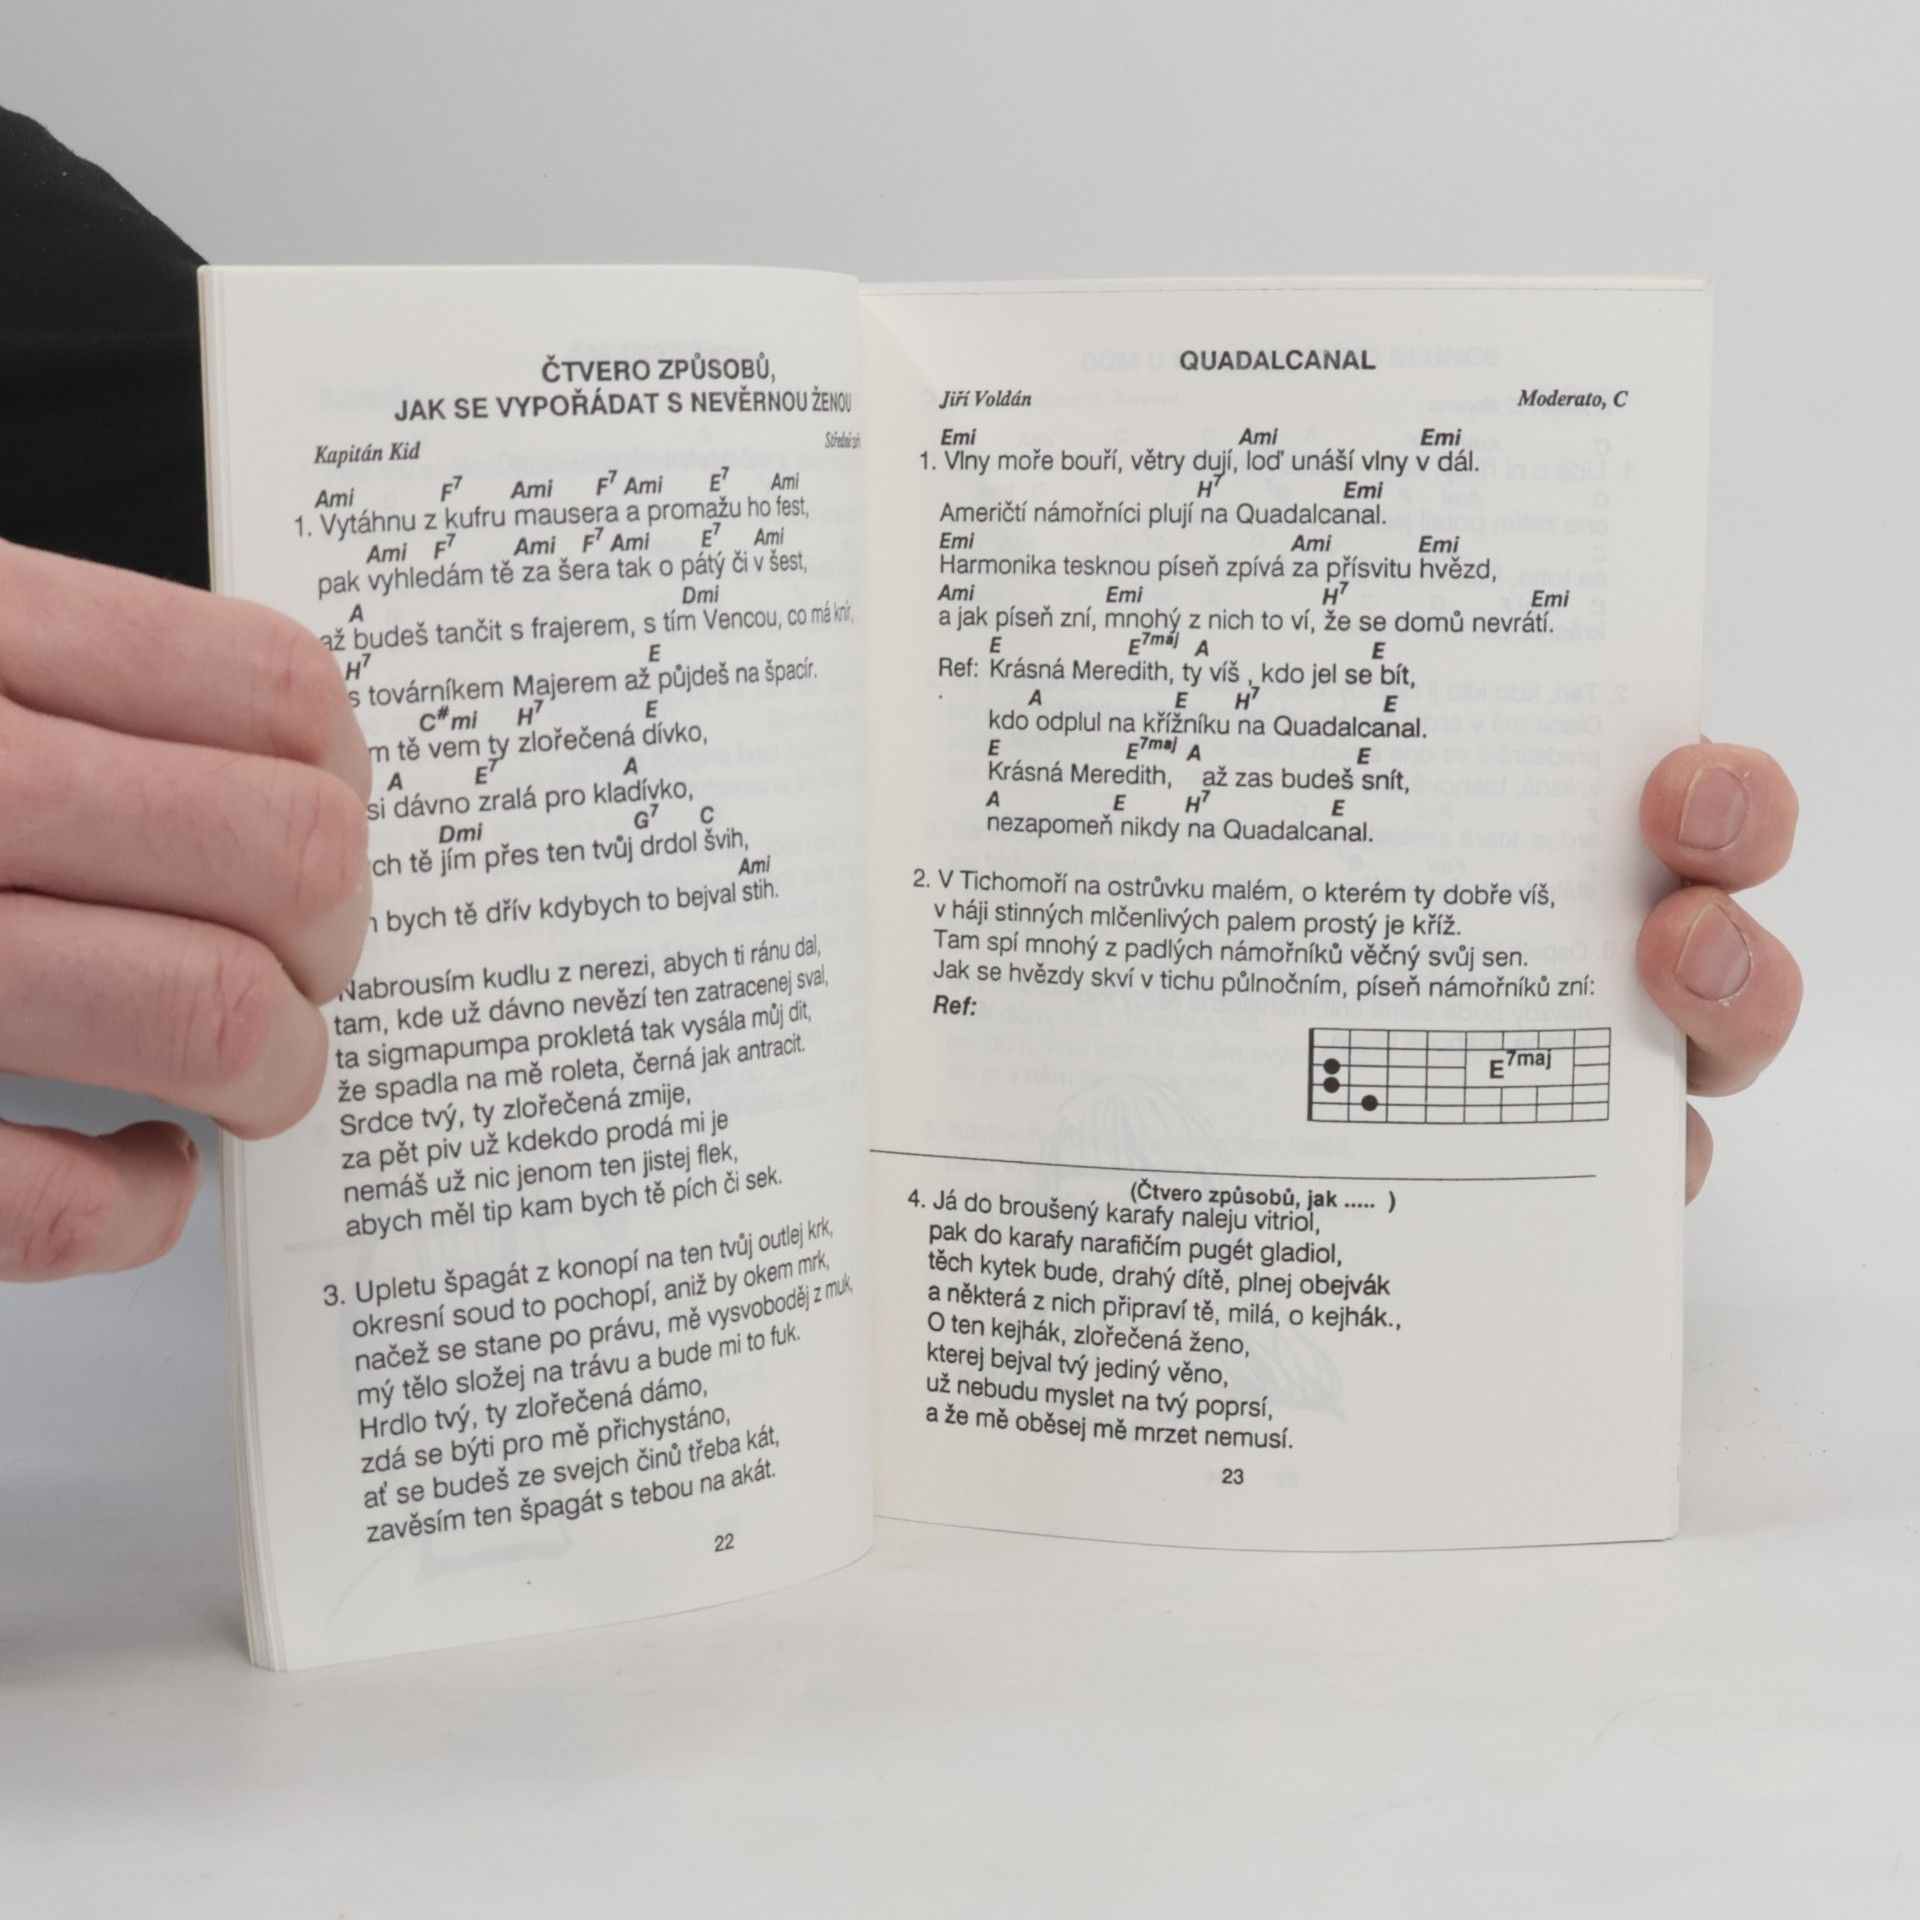 ČTVERO ZPŮSOBŮ,
JAK SE VYPOŘÁDAT S NEVĚRNOU ŽENOU
Kapitán Kid
Ami F7 Ami F7 Ami E7 Ami
1. Vytáhnu z kufru mausera a promažu ho fest,
Ami F7 Ami F7 Ami E7 Ami
pak vyhledám tě za šera tak o pátý či v šest,
A Dmi
až budeš tančit s frajerem, s tím Vencou, co má knír,
H7 E
s továrníkem Majerem až půjdeš na špacír.
C#mi H7 E
tě vem ty zlořečená dívko,
A E7 A
si dávno zralá pro kladívko,
Dmi G7 C
tě jím přes ten tvůj drdol švih,
Ami
bych tě dřív kdybych to bejval stih.
Nabrousím kudlu z nerezi, abych ti ránu dal,
tam, kde už dávno nevězí ten zatracenej sval,
ta sigmapumpa prokletá tak vysála můj dit,
že spadla na mě roleta, černá jak antracit.
Srdce tvý, ty zlořečená zmije,
za pět piv už kdekdo prodá mi je
nemáš už nic jenom ten jistej flek,
abych měl tip kam bych tě pích či sek.
3. Upletu špagát z konopí na ten tvůj outlej krk,
okresní soud to pochopí, aniž by okem mrk,
načež se stane po právu, mě vysvoboděj z muk,
mý tělo složej na trávu a bude mi to fuk.
Hrdlo tvý, ty zlořečená dámo,
zdá se býti pro mě přichystáno,
ať se budeš ze svejch činů třeba kát,
zavěsím ten špagát s tebou na akát.
22
QUADALCANAL
Jiří Voldán Moderato, C
Emi Ami Emi
1. Vlny moře bouří, větry dují, loď unáší vlny v dál.
H7 Emi
Američtí námořníci plují na Quadalcanal.
Emi Ami Emi
Harmonika tesknou píseň zpívá za přísvitu hvězd,
Ami Emi H7 Emi
a jak píseň zní, mnohý z nich to ví, že se domů nevrátí.
E E7maj A E
Ref: Krásná Meredith, ty víš , kdo jel se bít,
A E H7 E
kdo odplul na křížníku na Quadalcanal.
E E7maj A E
Krásná Meredith, až zas budeš snít,
A E H7 E
nezapomeň nikdy na Quadalcanal.
2. V Tichomoří na ostrůvku malém, o kterém ty dobře víš,
v háji stinných mlčenlivých palem prostý je kříž.
Tam spí mnohý z padlých námořníků věčný svůj sen.
Jak se hvězdy skví v tichu půlnočním, píseň námořníků zní:
Ref:
E7maj
(Čtvero způsobů, jak ..... )
4. Já do broušený karafy naleju vitriol,
pak do karafy narafičím pugét gladiol,
těch kytek bude, drahý dítě, plnej obejvák
a některá z nich připraví tě, milá, o kejhák.,
O ten kejhák, zlořečená ženo,
kterej bejval tvý jediný věno,
už nebudu myslet na tvý poprsí,
a že mě oběsej mě mrzet nemusí.
23